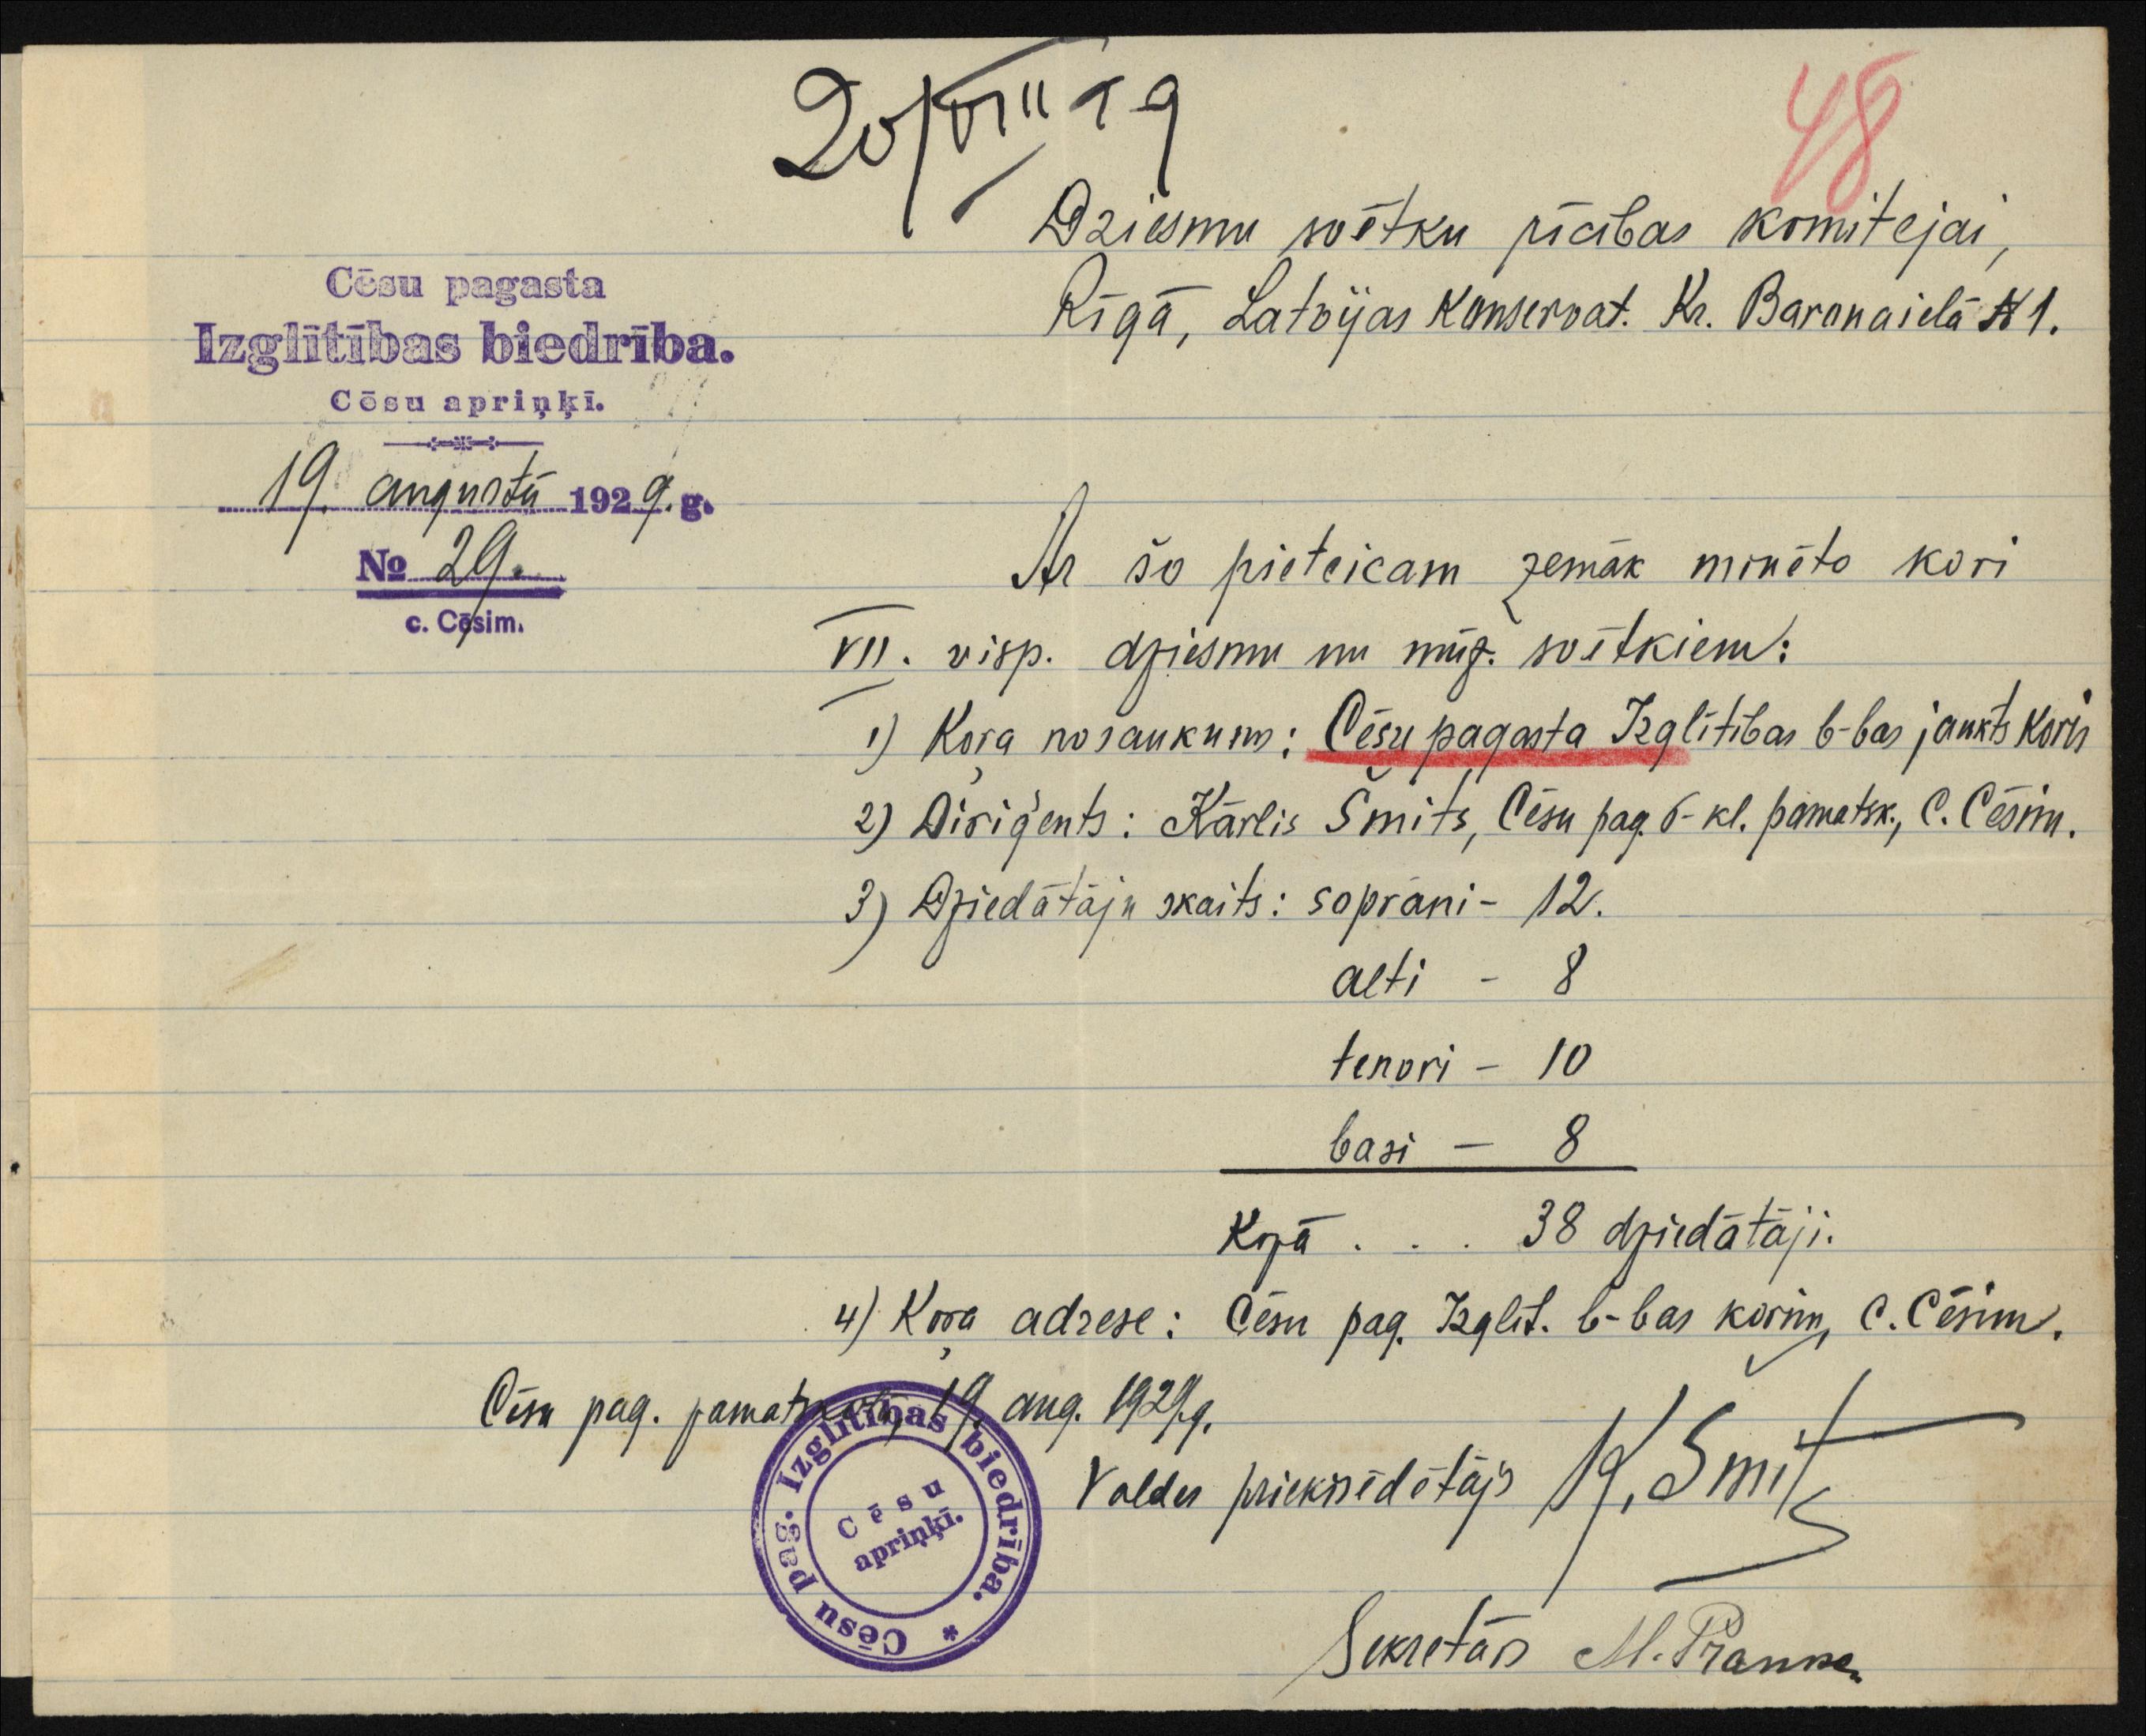 20/VIII 29
48
Dziesmu svētku rīcības komitejai,
Rīgā, Latvijas Konservat. Kr. Barona ielā № 1.
Cēsu pagasta
Izglītības biedrība.
Cēsu apriņķī.
19. augustā 1929. g.
№ 29.
c. Cēsim.
Ar šo pieteicam zemāk minēto kori
VII. visp. dziesmu un mūz. svētkiem:
1) Koŗa nosaukums: Cēsu pagasta Izglītības b-bas jaukts koris
2) Diriģents: Kārlis Šmits, Cēsu pag. 6-kl. pamatsk., C. Cēsim.
3) Dziedātāju skaits: soprāni - 12.
alti - 8
tenori - 10
basi - 8
Kopā . . . 38 dziedātāji.
4) Koŗa adrese: Cēsu pag. Izglīt. b-bas korim, C. Cēsim.
Cēsu pag. pamatskolā, 19. aug. 1929. g.
Valdes priekšsēdētājs K. Šmits
Cēsu pag. Izglītības biedrība. *
Cēsu
apriņķī.
Sekretārs M.